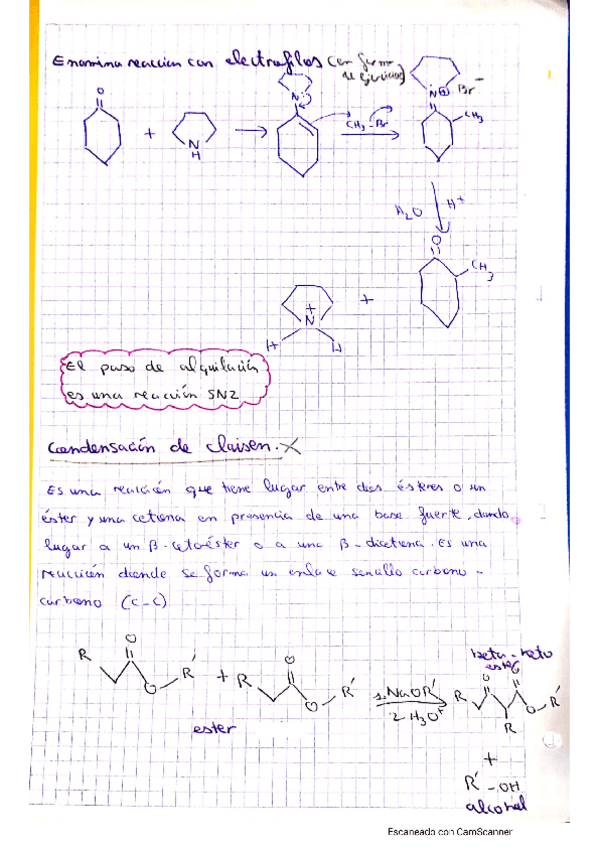 Enamina reacción con electrofilos (en forma
de ejercicios)
O
N
N
Br
CH3
+
N
H
CH3-Br
H2O
H+
O
CH3
+
+
N
H
H
El paso de alquilación
es una reacción SN2
Condensación de Claisen. X
Es una reacción que tiene lugar entre dos ésteres o un
éster y una cetona en presencia de una base fuerte, dando
lugar a un β-cetoéster o a una β-dicetona. Es una
reacción donde se forma un enlace sencillo carbono-
carbono (C-C)
beta-keto
ester
R
O
O
R'
+
R
O
O
R'
1. NaOR'
2. H3O+
R
O
O
O
R'
R
ester
+
R'-OH
alcohol
Escaneado con CamScanner